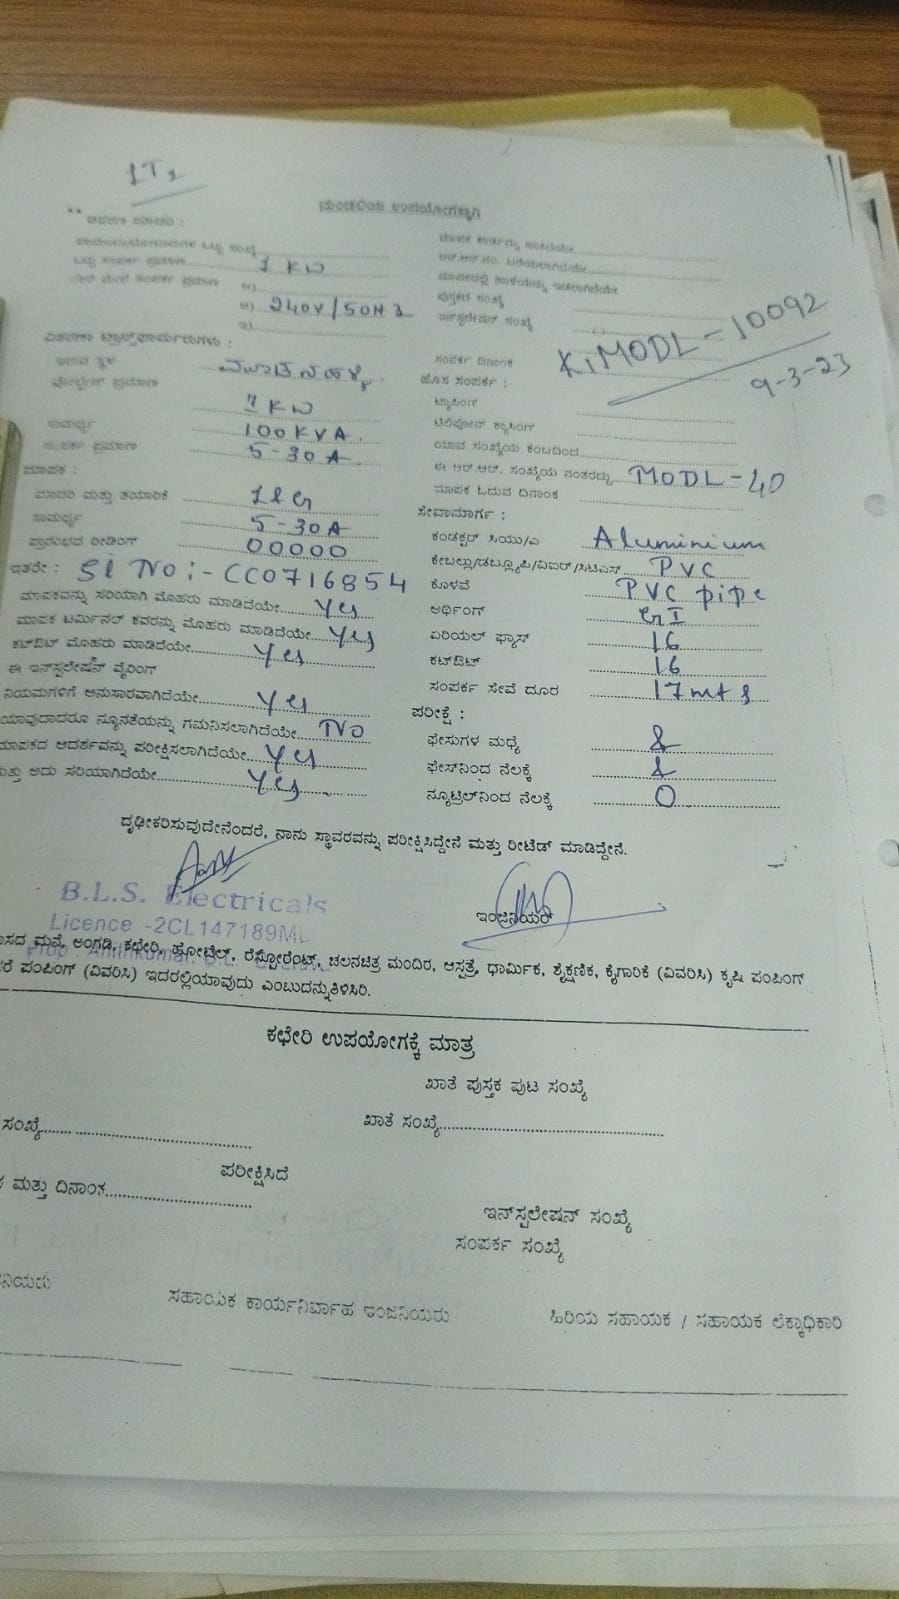 LT2
ಮಂಡಳಿಯ ಉಪಯೋಗಕ್ಕಾಗಿ
1 KW
ಅ)
ಆ) 240V/50HZ
ಇ)
ಇನ್‌ಸ್ಟಲೇಷನ್ ಸಂಖ್ಯೆ
ವಿತರಣಾ ಟ್ರಾನ್ಸ್‌ಫಾರ್ಮರುಗಳು :
ಇರುವ ಸ್ಥಳ
ವೋಲ್ಟೇಜ್ ಪ್ರಮಾಣ 1 KW
ಸಾಮರ್ಥ್ಯ 100KVA
ಸಂಪರ್ಕ ಪ್ರಮಾಣ 5-30A
ಮಾಪಕ :
ಮಾದರಿ ಮತ್ತು ತಯಾರಿಕೆ L&G
ಸಾಮರ್ಥ್ಯ 5-30A
ಪ್ರಾರಂಭದ ರೀಡಿಂಗ್ 00000
ಇತರೇ : Sl No :- CC0716854
ಮಾಪಕವನ್ನು ಸರಿಯಾಗಿ ಮೊಹರು ಮಾಡಿದೆಯೇ Yes
ಮಾಪಕ ಟರ್ಮಿನಲ್ ಕವರನ್ನು ಮೊಹರು ಮಾಡಿದೆಯೇ Yes
ಕಟ್‌ಔಟ್ ಮೊಹರು ಮಾಡಿದೆಯೇ Yes
ಈ ಇನ್‌ಸ್ಟಲೇಷನ್ ವೈರಿಂಗ್
ನಿಯಮಗಳಿಗೆ ಅನುಸಾರವಾಗಿದೆಯೇ Yes
ಯಾವುದಾದರೂ ನ್ಯೂನತೆಯನ್ನು ಗಮನಿಸಲಾಗಿದೆಯೇ No
ಮಾಪಕದ ಆದರ್ಶವನ್ನು ಪರೀಕ್ಷಿಸಲಾಗಿದೆಯೇ Yes
ಮತ್ತು ಅದು ಸರಿಯಾಗಿದೆಯೇ Yes
ಸಂಪರ್ಕ ದಿನಾಂಕ KIMODL-10092
9-3-23
ಹೊಸ ಸಂಪರ್ಕ :
ಟ್ಯಾಪಿಂಗ್
ಯಾವ ಸಂಖ್ಯೆಯ ಕಂಬದಿಂದ
ಈ ಆರ್.ಆರ್. ಸಂಖ್ಯೆಯ ನಂತರದ್ದು MODL-40
ಮಾಪಕ ಓದುವ ದಿನಾಂಕ
ಸೇವಾಮಾರ್ಗ :
ಕಂಡಕ್ಟರ್ ಸಿಯು/ಎ Aluminium
ಕೇಬಲ್ಲು/ಡಬ್ಲ್ಯೂಪಿ/ವಿಐಆರ್/ಸಿಟಿಎಸ್ PVC
ಕೊಳವೆ PVC pipe
ಅರ್ಥಿಂಗ್ GI
ಏರಿಯಲ್ ಫ್ಯಾಸ್ 16
ಕಟ್‌ಔಟ್ 16
ಸಂಪರ್ಕ ಸೇವೆ ದೂರ 17mts
ಪರೀಕ್ಷೆ :
ಫೇಸುಗಳ ಮಧ್ಯೆ
ಫೇಸ್‌ನಿಂದ ನೆಲಕ್ಕೆ
ನ್ಯೂಟ್ರಲ್‌ನಿಂದ ನೆಲಕ್ಕೆ 0
ದೃಢೀಕರಿಸುವುದೇನೆಂದರೆ, ನಾನು ಸ್ಥಾವರವನ್ನು ಪರೀಕ್ಷಿಸಿದ್ದೇನೆ ಮತ್ತು ರೀಟೆಡ್ ಮಾಡಿದ್ದೇನೆ.
B.L.S. Electricals
Licence -2CL147189ML
ಇಂಜಿನಿಯರ್
ಮನೆ, ಅಂಗಡಿ, ಕಛೇರಿ, ಹೋಟೆಲ್, ರೆಸ್ಟೋರೆಂಟ್, ಚಲನಚಿತ್ರ ಮಂದಿರ, ಆಸ್ಪತ್ರೆ, ಧಾರ್ಮಿಕ, ಶೈಕ್ಷಣಿಕ, ಕೈಗಾರಿಕೆ (ವಿವರಿಸಿ) ಕೃಷಿ ಪಂಪಿಂಗ್
ಪಂಪಿಂಗ್ (ವಿವರಿಸಿ) ಇದರಲ್ಲಿಯಾವುದು ಎಂಬುದನ್ನುತಿಳಿಸಿರಿ.
ಕಛೇರಿ ಉಪಯೋಗಕ್ಕೆ ಮಾತ್ರ
ಖಾತೆ ಪುಸ್ತಕ ಪುಟ ಸಂಖ್ಯೆ
ಸಂಖ್ಯೆ
ಖಾತೆ ಸಂಖ್ಯೆ
ಪರೀಕ್ಷಿಸಿದೆ
ಮತ್ತು ದಿನಾಂಕ
ಇನ್‌ಸ್ಪಲೇಷನ್ ಸಂಖ್ಯೆ
ಸಂಪರ್ಕ ಸಂಖ್ಯೆ
ಸಹಾಯಕ ಕಾರ್ಯನಿರ್ವಾಹ ಇಂಜಿನಿಯರು
ಹಿರಿಯ ಸಹಾಯಕ / ಸಹಾಯಕ ಲೆಕ್ಕಾಧಿಕಾರಿ